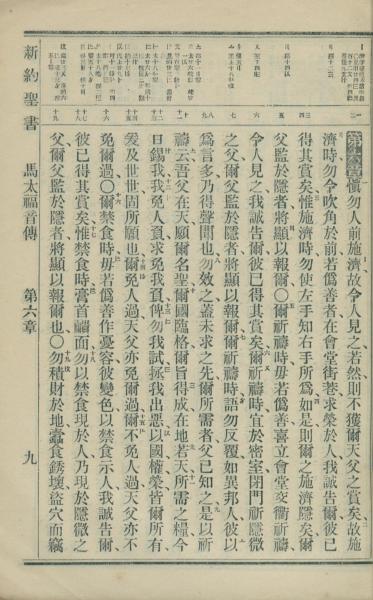 第六章愼勿人前施濟故令人見之若然則不獲爾天父之賞矣故施
濟時勿令吹角於前若僞善者在會堂街巷求榮於人我誠告爾彼已
得其賞矣惟施濟時勿使左手知右手所爲如是則爾之施濟隱矣爾
父監於隱者將顯以報爾〇爾祈禱時毋若僞善喜立會堂交衢祈禱
令人見之我誠告爾彼已得其賞矣爾祈禱時宜於密室閉門祈隱微
之父爾父監於隱者將顯以報爾爾祈禱時語勿反覆如異邦人彼以
爲言多乃得聲聞也勿效之蓋未求之先爾所需者父已知之是以祈
禱云吾父在天願爾名聖爾國臨格爾旨得成在地若天所需之糧今
日錫我我免人負求免我負俾勿我試拯我出惡以國權榮皆爾所有
爰及世世固所願也爾免人過天父亦免爾過爾不免人過天父亦不
免爾過〇爾禁食時毋若僞善作憂容彼變色以禁食示人我誠告爾
彼已得其賞矣惟禁食時膏首靧面勿以禁食現於人乃現於隱微之
父爾父監於隱者將顯以報爾也〇勿積財於地蠹食銹壞盜穴而竊
新約聖書 馬太福音傳 第六章 九